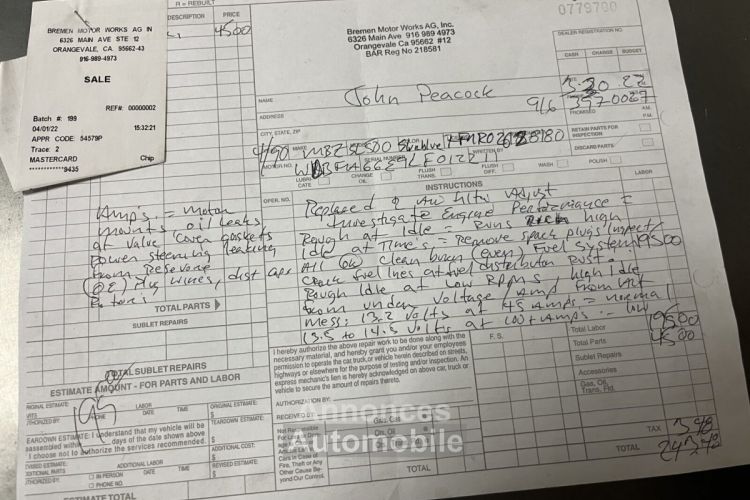 R = REBUILT
DESCRIPTION PRICE
4500
0779700
BREMEN MOTOR WORKS AG IN
6326 MAIN AVE STE 12
ORANGEVALE, CA 95662-43
916-989-4973
SALE
REF#: 00000002
Batch #: 199
04/01/22 15:32:21
APPR CODE: 54579P
Trace: 2
MASTERCARD Chip
************9435
Bremen Motor Works AG, Inc.
6326 Main Ave 916 989 4973
Orangevale Ca 95662 #12
BAR Reg No 218581
DEALER REGISTRATION NO.
CASH CHARGE BUDGET
NAME John Peacock 3-30-22
916 397-0027
PROMISED A.M. P.M.
ADDRESS
CITY, STATE, ZIP
RETAIN PARTS FOR INSPECTION
DISCARD PARTS
MAKE
MOTOR NO. SERIAL NUMBER WRITTEN BY
LUBRICATE CHANGE OIL FLUSH TRANS. FLUSH DIFF. WASH POLISH
OPER. NO. INSTRUCTIONS LABOR
Investigate Engine Performance =
Rough at Idle = Runs Rich high
Idle at Time's = Remove spark plugs/inspect/
All OK clean burn (even) Fuel System 19500
Crack fuel lines at fuel distributor Rust.
Rough Idle at low RPMs, high Idle
from under voltage/Amp from Alt
mess: 13.2 volts at 45 Amps = normal
13.5 to 14.5 volts at 100+ Amps - low
Amp's = Motor
mounts, oil leaks
at valve cover gaskets
power steering leaking
from Reserve
(OE) Plug wires, dist caps
Rotors
TOTAL PARTS
SUBLET REPAIRS
TOTAL SUBLET REPAIRS
ESTIMATE AMOUNT - FOR PARTS AND LABOR
LABOR
PHONE DATE TIME
ORIGINAL ESTIMATE $
TEARDOWN ESTIMATE: I understand that my vehicle will be
reassembled within days of the date shown above
if I choose not to authorize the services recommended.
TEARDOWN ESTIMATE $
ADDITIONAL COST $
ADDITIONAL LABOR
IN PERSON
PHONE NO. DATE TIME
REVISED ESTIMATE $
ESTIMATE TOTAL
I hereby authorize the above repair work to be done along with the
necessary material, and hereby grant you and/or your employees
permission to operate the car, truck or vehicle herein described on streets,
highways or elsewhere for the purpose of testing and/or inspection. An
express mechanic's lien is hereby acknowledged on above car, truck or
vehicle to secure the amount of repairs thereto.
AUTHORIZATION BY:
RECEIVED BY
Not Responsible
Cars in Case of
Fire, Theft or Any
Other Cause Beyond
Our Control.
TOTAL
F.S.
Total Labor 19500
Total Parts 4500
Sublet Repairs
Accessories
Gas, Oil, Trans. Fld.
TAX 3.48
TOTAL 243.48
Annonces
Automobile